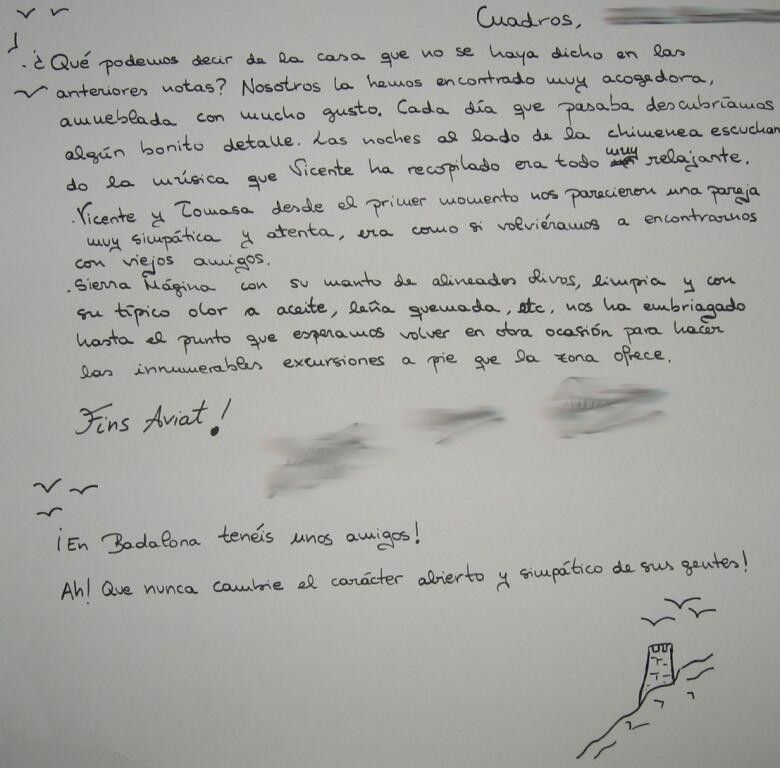 Cuadros,
. ¿Qué podemos decir de la casa que no se haya dicho en las
anteriores notas? Nosotros la hemos encontrado muy acogedora,
amueblada con mucho gusto. Cada día que pasaba descubríamos
algún bonito detalle. Las noches al lado de la chimenea escuchan
do la música que Vicente ha recopilado era todo muy relajante.
. Vicente y Tomasa desde el primer momento nos parecieron una pareja
muy simpática y atenta, era como si volviéramos a encontrarnos
con viejos amigos.
. Sierra Mágina con su manto de alineados olivos, limpia y con
su típico olor a aceite, leña quemada, etc, nos ha embriagado
hasta el punto que esperamos volver en otra ocasión para hacer
las innumerables excursiones a pie que la zona ofrece.
Fins Aviat!
¡En Badalona tenéis unos amigos!
Ah! Que nunca cambie el carácter abierto y simpático de sus gentes!